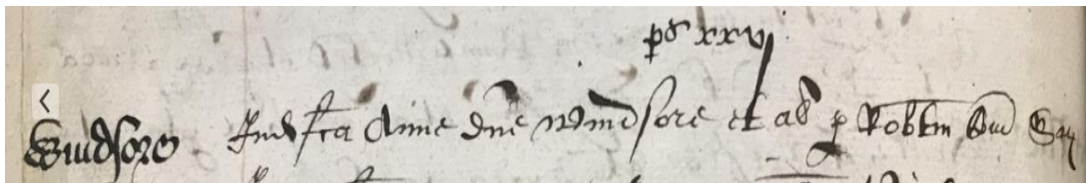 ps xxvj
Windsore Indra fca Anne dne Windsore et al p Robtm